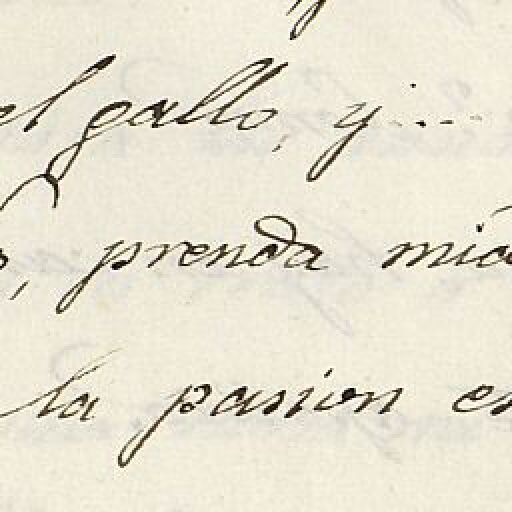 el gallo, y....
, prenda mía
la pasion en